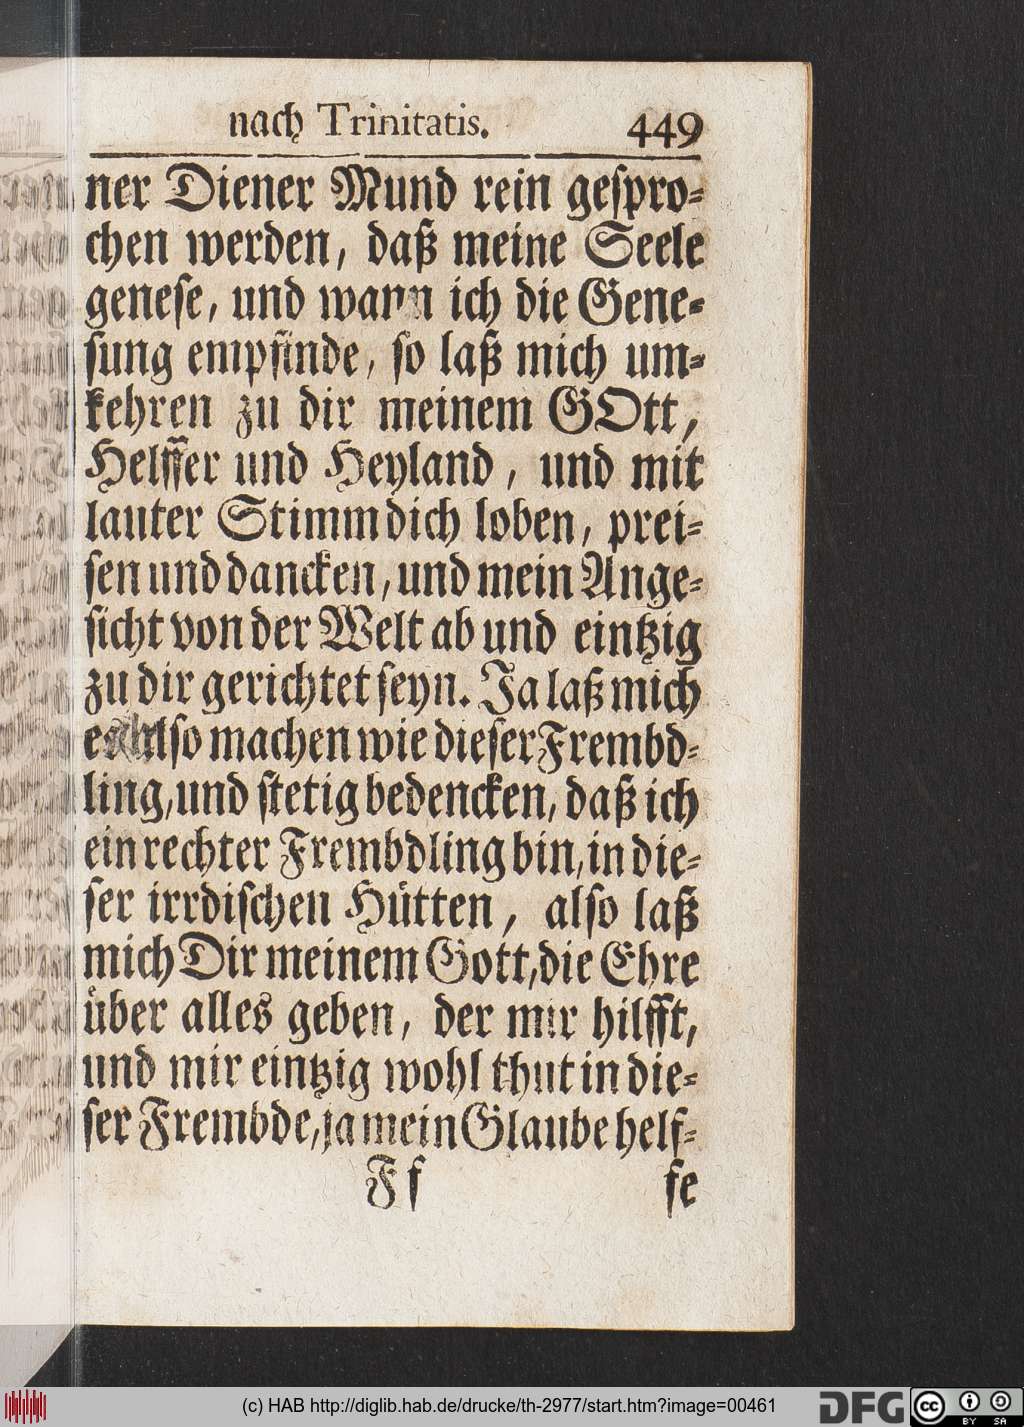 nach Trinitatis. 449
ner Diener Mund rein geſpro⸗
chen werden, daß meine Seele
geneſe, und wann ich die Gene⸗
ſung empfinde, ſo laß mich um⸗
kehren zu dir meinem GOtt,
Helffer und Heyland, und mit
lauter Stimm dich loben, prei⸗
ſen und dancken, und mein Ange⸗
ſicht von der Welt ab und eintzig
zu dir gerichtet ſeyn. Ja laß mich
es alſo machen wie dieſer Frembd⸗
ling, und ſtetig bedencken, daß ich
ein rechter Frembdling bin, in die⸗
ſer irrdiſchen Huͤtten, alſo laß
mich Dir meinem Gott, die Ehre
uͤber alles geben, der mir hilfft,
und mir eintzig wohl thut in die⸗
ſer Frembde, ja mein Glaube helf⸗
F f ſe
(c) HAB http://diglib.hab.de/drucke/th-2977/start.htm?image=00461
DFG cc BY SA